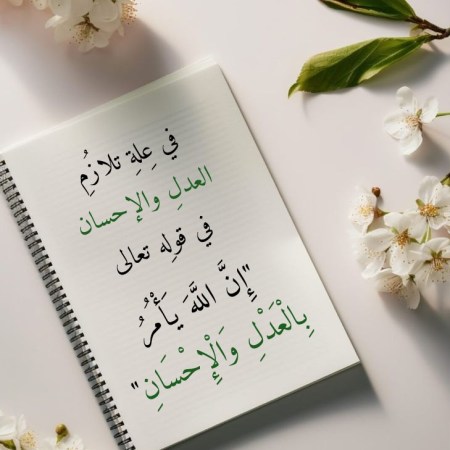 في عِلةِ تلازُمِ
العدلِ والإحسان
في قولِه تعالى
"إِنَّ اللَّهَ يَأْمُرُ
بِالْعَدْلِ وَالْإِحْسَانِ"